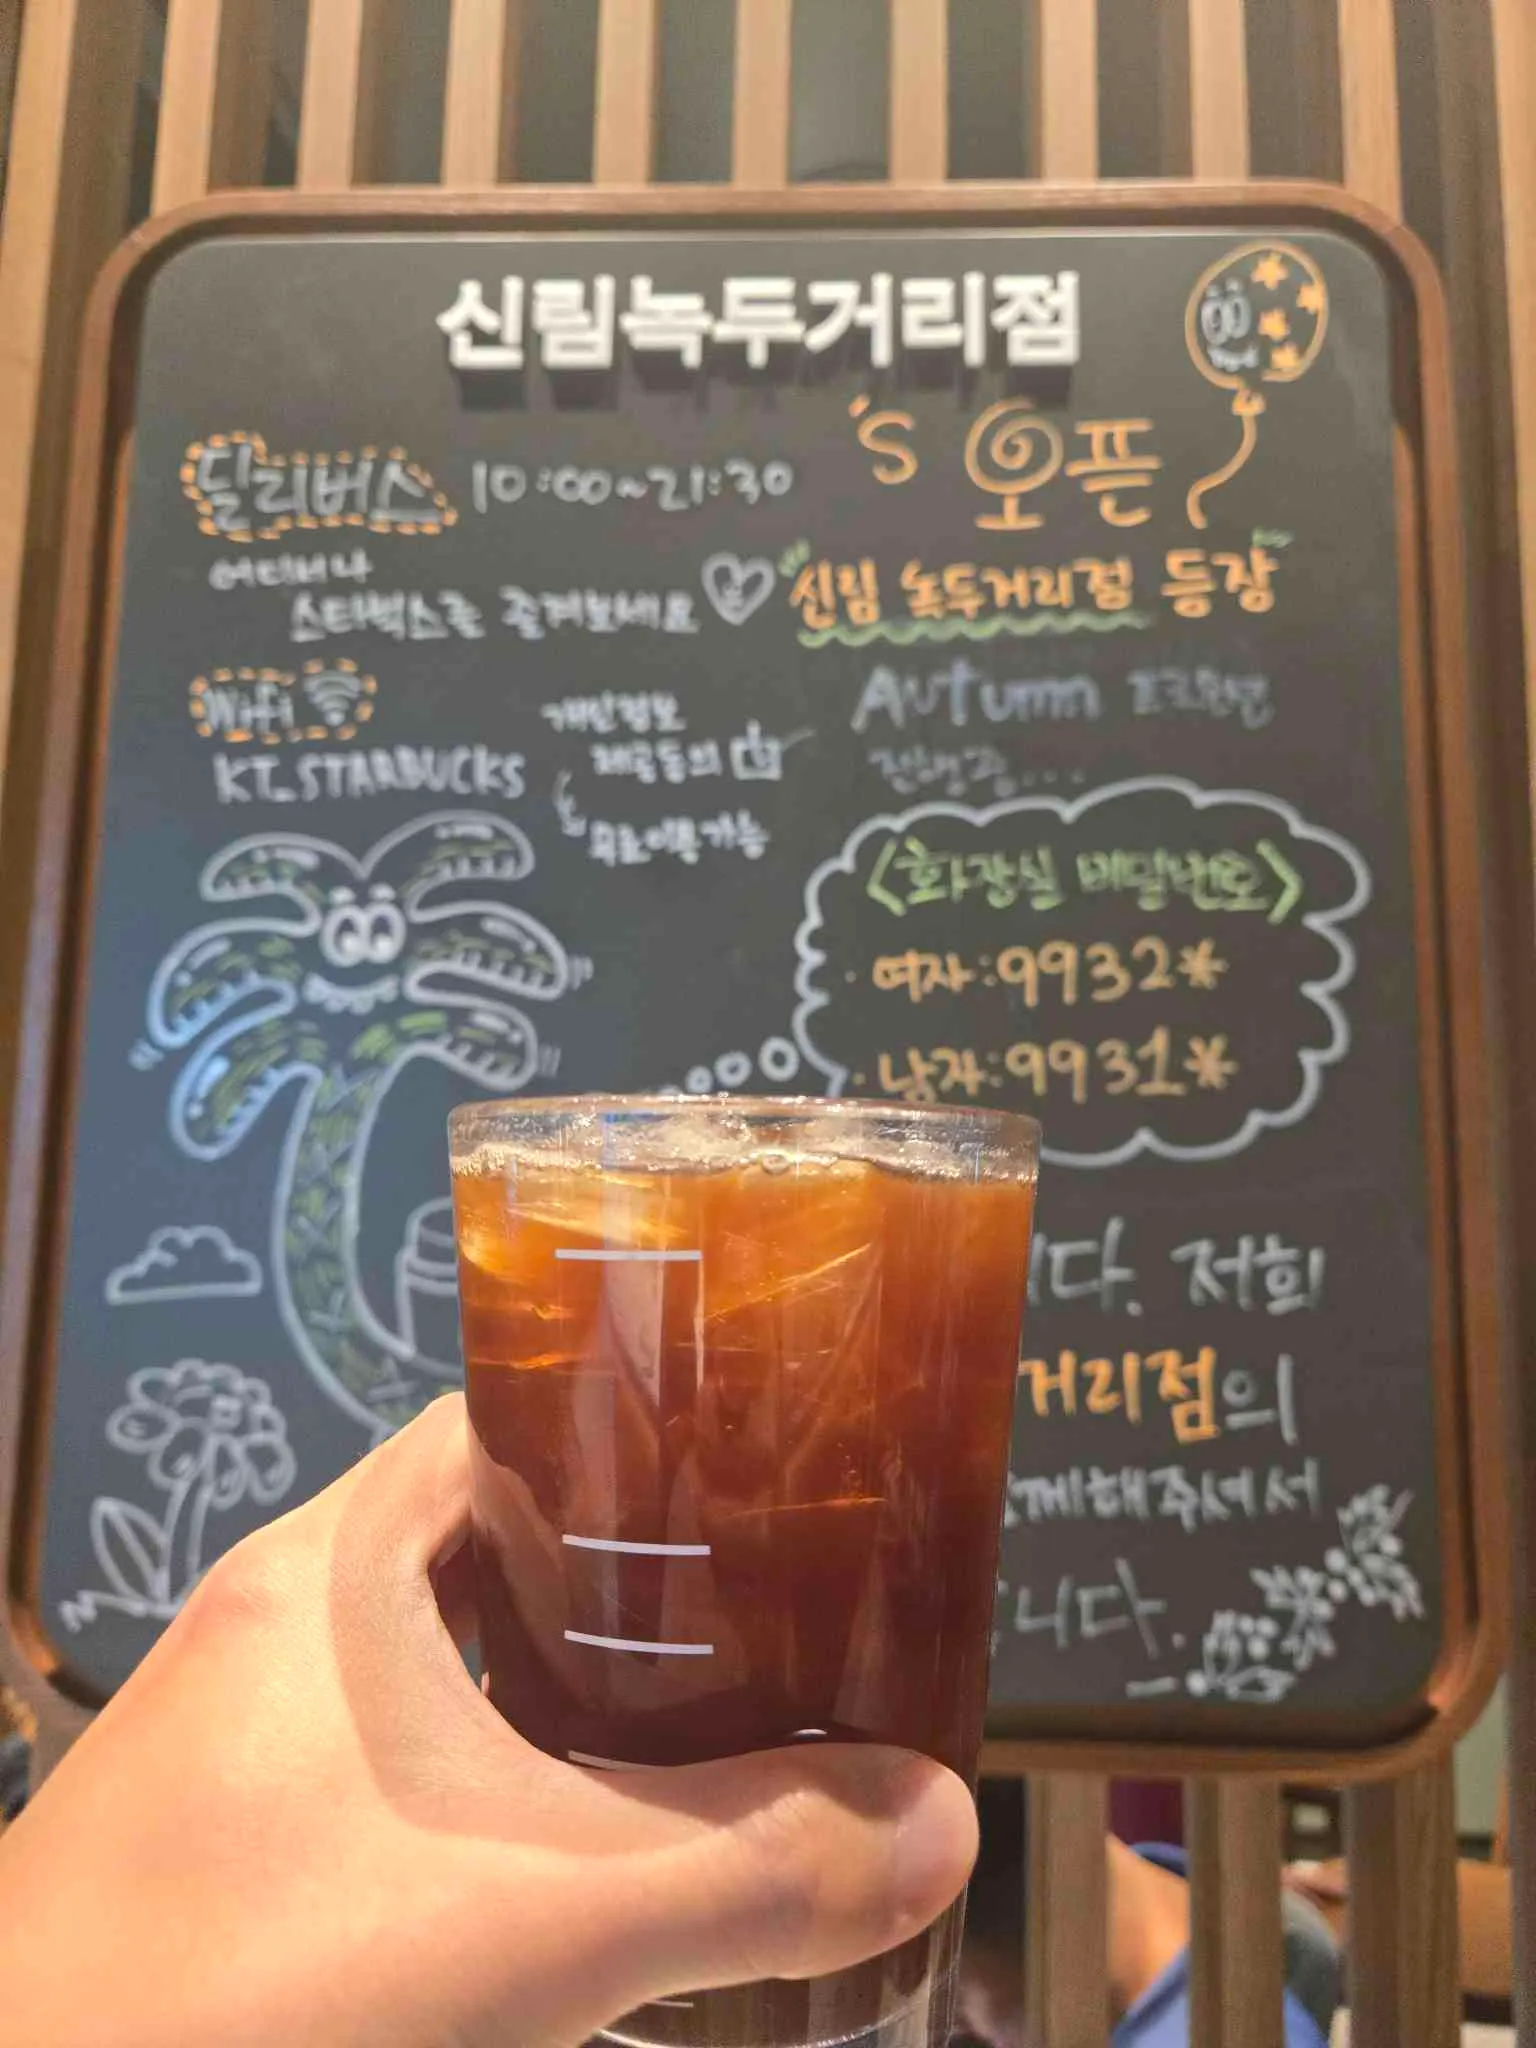 신림녹두거리점
's 오픈
딜리버스 10:00~21:30
어디서나
스타벅스를 즐겨보세요
신림 녹두거리점 등장
Wifi
KT_STARBUCKS
개인정보
제공동의
무료이용가능
Autumn 프로모션
진행중...
<화장실 비밀번호>
· 여자:9932*
· 남자:9931*
니다. 저희
거리점의
함께해주셔서
니다.